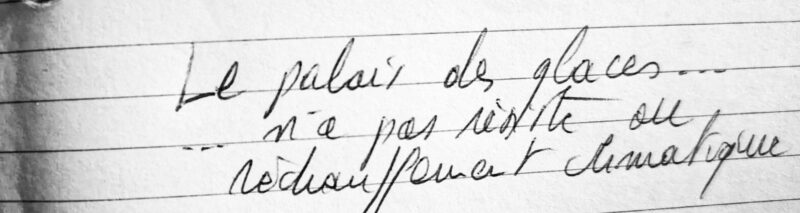 Le palais des glaces...
... n'a pas résisté au
réchauffement climatique